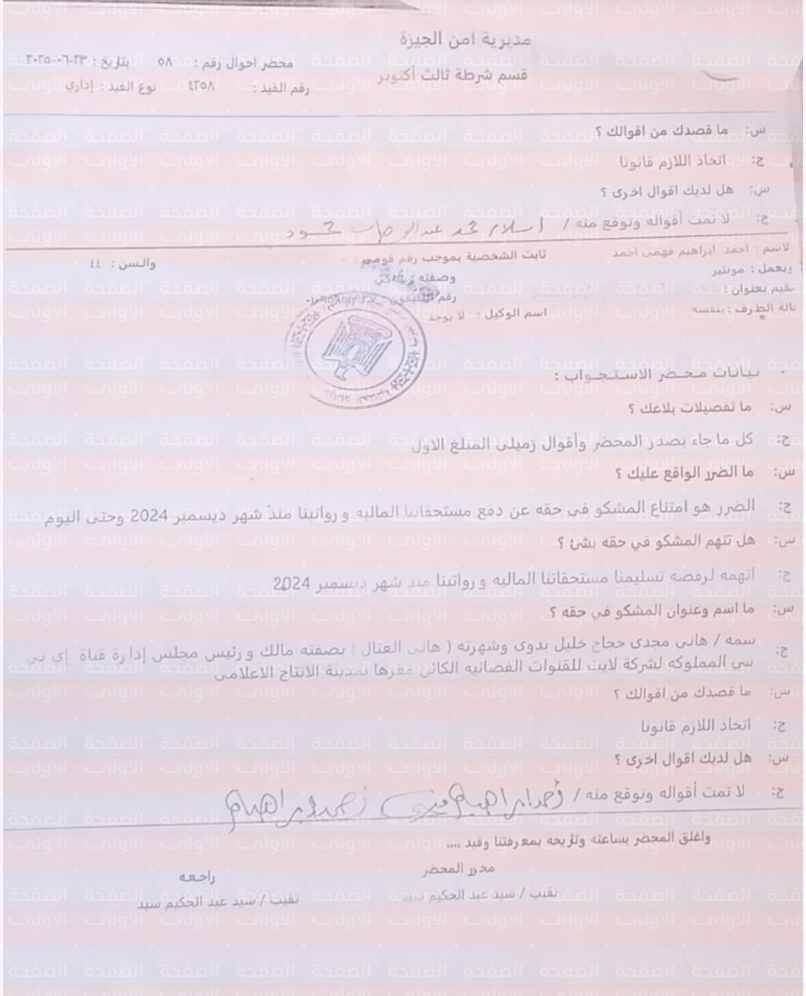 مديرية امن الجيزة
قسم شرطة ثالث أكتوبر
محضر احوال رقم : ٥٨ بتاريخ : ٢٣-٠٦-٢٠٢٥
رقم القيد : ٤٢٥٨ نوع القيد : إداري
س: ما قصدك من اقوالك ؟
ج: اتخاذ اللازم قانونا
س: هل لديك اقوال اخرى ؟
ج: لا تمت أقواله وتوقع منه / اسلام محمد عبدالوهاب محمود
لاسم : احمد ابراهيم فهمى احمد ثابت الشخصية بموجب رقم قومي : والسن : ٤٤
ويعمل : مونتير وصفته :
قيم بعنوان : رقم التليفون
الة الطرف : بنفسه اسم الوكيل : لا يوجد
بيانات محضر الاستجواب :
س: ما تفصيلات بلاغك ؟
ج: كل ما جاء بصدر المحضر وأقوال زميلى المبلغ الاول
س: ما الضرر الواقع عليك ؟
ج: الضرر هو امتناع المشكو فى حقه عن دفع مستحقاتنا الماليه و رواتبنا منذ شهر ديسمبر 2024 وحتى اليوم
س: هل تتهم المشكو في حقه بشئ ؟
ج: اتهمه لرفضه تسليمنا مستحقاتنا الماليه و رواتبنا منذ شهر ديسمبر 2024
س: ما اسم وعنوان المشكو في حقه ؟
ج: سمه / هانى مجدى حجاج خليل بدوى وشهرته ( هانى العتال ) بصفته مالك و رئيس مجلس إدارة قناة إي تي
سى المملوكه لشركة لايت للقنوات الفضائيه الكائن مقرها بمدينة الانتاج الاعلامى
س: ما قصدك من اقوالك ؟
ج: اتخاذ اللازم قانونا
س: هل لديك اقوال اخرى ؟
ج: لا تمت أقواله وتوقع منه / أحمد ابراهيم فهمى
واغلق المحضر بساعته وتاريخه بمعرفتنا وقيد ....
محرر المحضر راجعه
نقيب / سيد عبد الحكيم سيد نقيب / سيد عبد الحكيم سيد
الصفحة الأولى